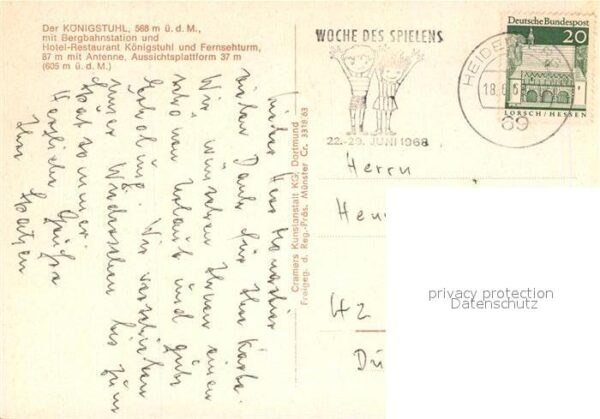 Der KÖNIGSTUHL, 568 m ü. d. M.,
mit Bergbahnstation und
Hotel-Restaurant Königstuhl und Fernsehturm,
87 m mit Antenne, Aussichtsplattform 37 m
(605 m ü. d. M.)
Lieber Herr
vielen Dank für Ihre Karte.
Wir wünschen Ihnen einen
schönen Urlaub und gute
Erholung. Wir verbleiben
unser Wiedersehen bis zum
Spätsommer.
Herzliche Grüße
Ihre
Cramers Kunstanstalt KG, Dortmund
Freigeg. d. Reg.-Präs. Münster Cr. 3318/63
WOCHE DES SPIELENS
22.-29. JUNI 1968
HEIDE
18.6.6
69
Deutsche Bundespost
20
LORSCH/HESSEN
Herrn
Hen
42
Dü
privacy protection
Datenschutz